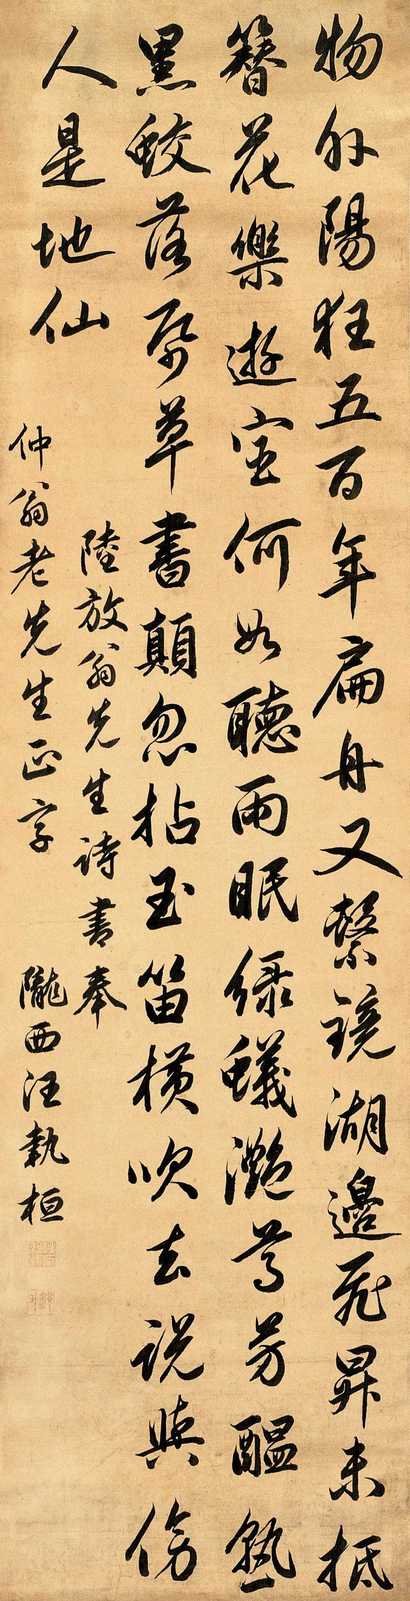 物外陽狂五百年扁舟又繫鏡湖邊飛昇未抵
簪花樂遊宦何如聽雨眠綠蟻灧尊芳醞熟
黑蛟落帋草書顛忽拈玉笛橫吹去說與傍
人是地仙
陸放翁先生詩書奉
仲翁老先生正字
隴西汪執桓